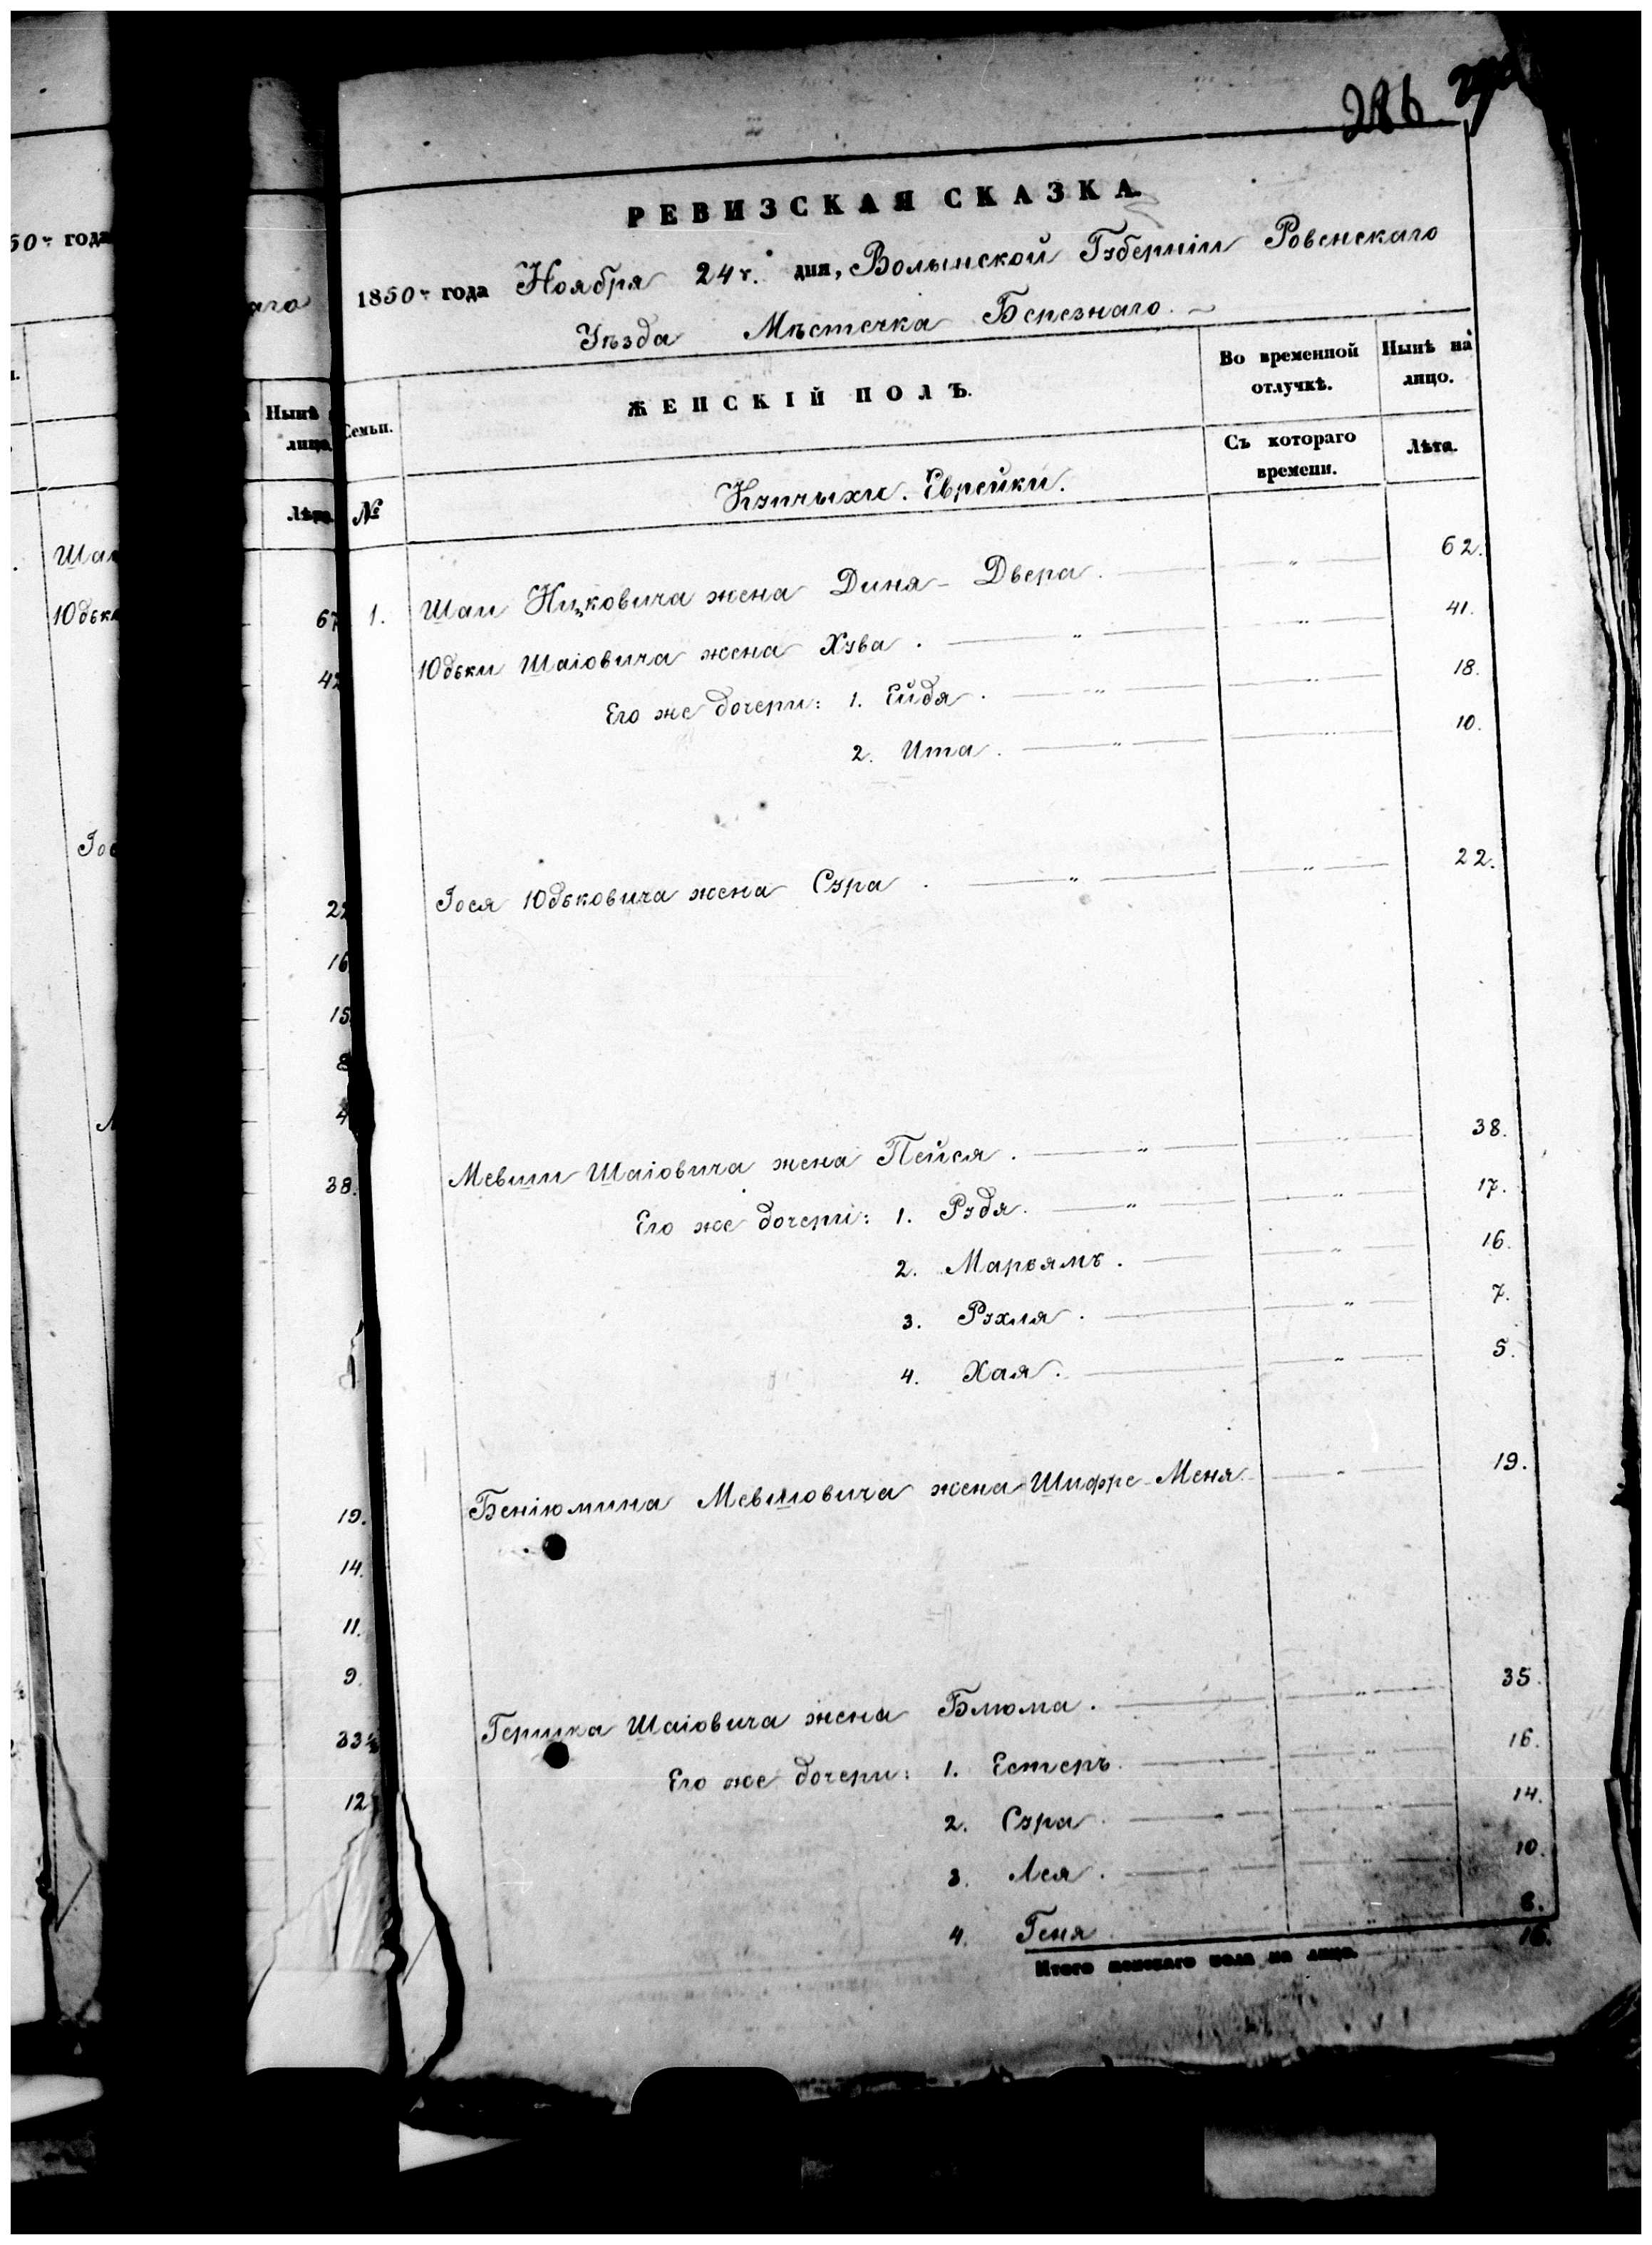 286
РЕВИЗСКАЯ СКАЗКА
1850 г. года Ноября 24 г. дня, Волынской Губерніи Ровенскаго
Уѣзда Мѣстечка Березнаго.
Семьи.
ЖЕНСКІЙ ПОЛЪ.
Во временной отлучкѣ.
Нынѣ на лицо.
Съ котораго времени.
Лѣта.
№
Купчыхи. Еврейки.
1. Шаи Ицковича жена Диня-Двера. 62.
Юдьки Шаіовича жена Хува. 41.
Его же дочери: 1. Ейдя. 18.
2. Ита. 10.
Іося Юдьковича жена Сура. 22.
Мевши Шаіовича жена Пейся. 38.
Его же дочери: 1. Рудя. 17.
2. Марьямъ. 16.
3. Рухля. 7.
4. Хая. 5.
Беніюмина Мевшовича жена Шифре-Меня 19.
Гершка Шаіовича жена Блюма. 35.
Его же дочери: 1. Естеръ. 16.
2. Сура. 14.
3. Лея. 10.
4. Геня. 6.
Итого женскаго пола на лицо. 16.
50 г. года
аго
Нынѣ
лицо.
Лѣта.
Шаи
Юдьк
67
42
22
16
15
8
4
38.
19.
14.
11.
9.
33½
12